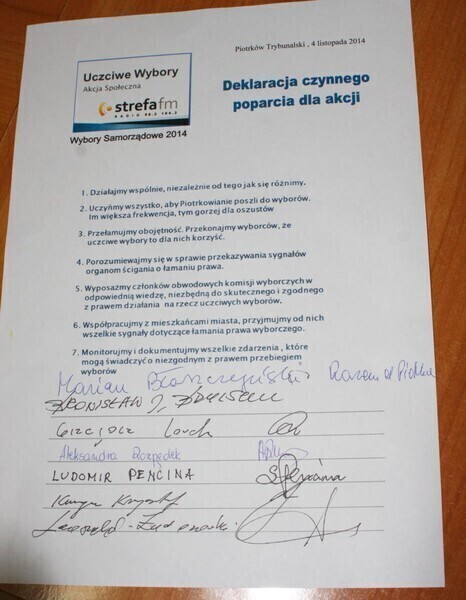 Piotrków Trybunalski , 4 listopada 2014
Uczciwe Wybory
Akcja Społeczna
strefa fm
RADIO
Wybory Samorządowe 2014
Deklaracja czynnego
poparcia dla akcji
1. Działajmy wspólnie, niezależnie od tego jak się różnimy.
2. Uczyńmy wszystko, aby Piotrkowianie poszli do wyborów.
Im większa frekwencja, tym gorzej dla oszustów
3. Przełamujmy obojętność. Przekonajmy wyborców, że
uczciwe wybory to dla nich korzyść.
4. Porozumiewajmy się w sprawie przekazywania sygnałów
organom ścigania o łamaniu prawa.
5. Wyposażmy członków obwodowych komisji wyborczych w
odpowiednią wiedzę, niezbędną do skutecznego i zgodnego
z prawem działania na rzecz uczciwych wyborów.
6. Współpracujmy z mieszkańcami miasta, przyjmujmy od nich
wszelkie sygnały dotyczące łamania prawa wyborczego.
7. Monitorujmy i dokumentujmy wszelkie zdarzenia , które
mogą świadczyć o niezgodnym z prawem przebiegiem
wyborów
Marian Błaszczyński Razem dla
BRONISŁAW
Aleksandra Rozpędek
LUDOMIR PENCINA
Krzysztof
Leopold